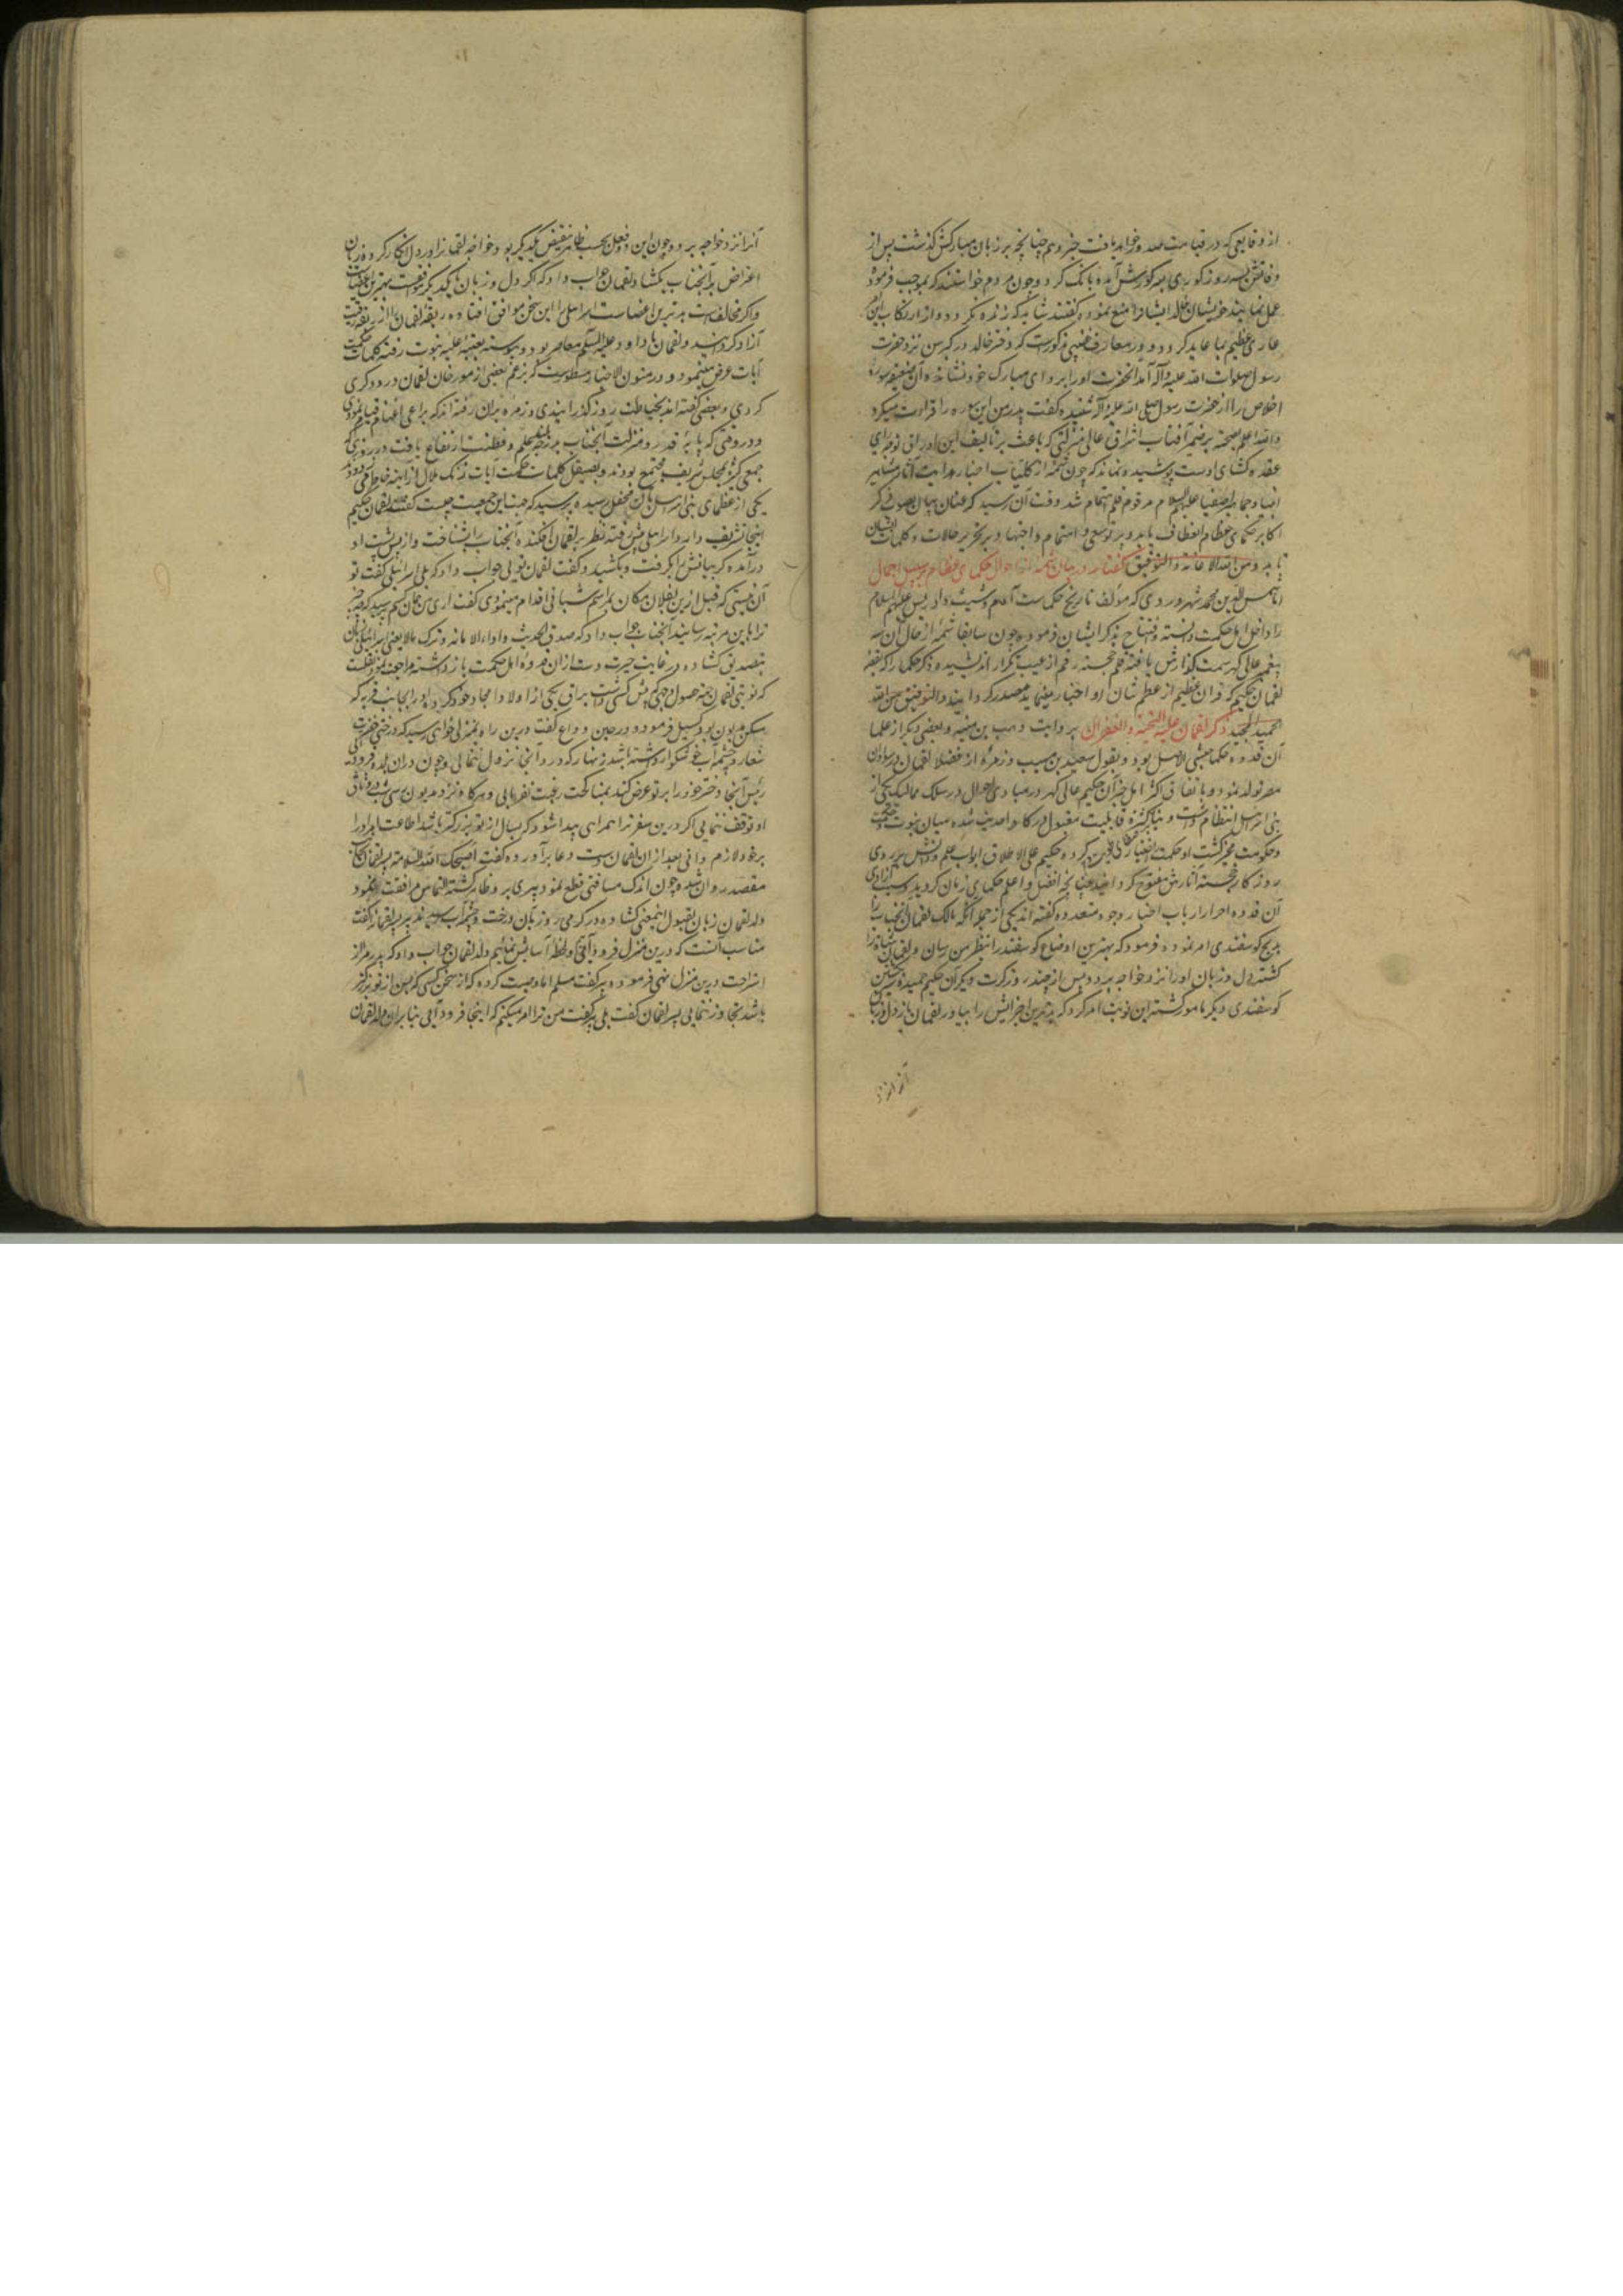 از وقایعی که در قیامت صدور خواهد یافت خبر دهم چنانچه بر زبان مبارکش گذشت پس از
وفاتش بسه روز کوری بسر کورش آمده بانک کرد و چون مردم خواستند که بموجب فرموده
عمل نمایند خویشان خالد ایشانرا منع نموده گفتند شاید که زنده نکردد و از ارتکاب این امر
عاری عظیم بما عاید کردد و در معارف مذکورست که دختر خالد در کبر سن نزد حضرت
رسول صلوات الله علیه و آله آمد آنحضرت او را بر ردای مبارک خود نشاند و آن ضعیفه سوره
اخلاص را از حضرت رسول صلی الله علیه و آله شنیده گفت پدر من این سوره را قراءت میکرد
والله اعلم بصحته بر ضمیر آفتاب اشراق عالی منزلتی که باعث بر تالیف این اوراق توجه رای
عقده کشای اوست پوشیده نماند که چون شمه از کلیات اخبار هدایت آثار مشاهیر
انبیا و جماهیر اصفیا علیهم السلام مرقوم قلم اهتمام شد وقت آن رسید که عنان بیان بصوب ذکر
اکابر حکمای عظام انعطاف یابد و پرتو سعی و اهتمام و اجتهاد بر تحریر حالات و کلمات ایشان
تابد و من الله الاعانة والتوفیق گفتار در بیان شمه از احوال حکمای عظام بر سبیل اجمال
اما شمس الدین محمد شهرزوردی که مولف تاریخ حکماست آدم و شیث و ادریس علیهم السلام
را داخل اهل حکمت دانسته و افتتاح بذکر ایشان فرموده و چون سابقا شمه از حال آن سه
پیغمبر عالی کهر سمت کذارش یافته قلم خجسته رقم از عیب تکرار اندیشیده ذکر حکما را بقصه
لقمان حکیم که قرآن عظیم از عظم شان او اخبار مینماید مصدر کردانید والتوفیق من الله
الحمید المجید ذکر لقمان علیه التحیة والغفران بروایت وهب بن منبه و بعضی دیکر از علما
آن قدوه حکما حبشی الاصل بود و بقول سعید بن مسیب و زمره از فضلا لقمان در سودان
مصر تولد نمود و باتفاق اکثر اهل خبر آن حکیم عالی کهر در مبادی احوال در سلک ممالیک یکی از
بنی اسرائیل انتظام داشت و بنا بر کثرت قابلیت مقبول درکاه احدیت شده میان نبوت و حکمت
و حکومت مخیر کشت او حکمت اختیار کرده حکیم علی الاطلاق ابواب علم و دانش بر روی
روزکار خجسته آثارش مفتوح کردانید چنانچه افضل و اعلم حکمای زمان کردید و سبب آزادی
آن قدوه احرار ارباب اخبار وجوه متعدده کفته اند یکی از جمله آنکه مالک لقمان آنجناب را
بذبح کوسفندی امر نموده فرمود که بهترین اوضاع کوسفند را بنظر من رسان و لقمان شاة را
کشته دل و زبان او را نزد خواجه برد و پس از چند روز کرت دیکر آن حکیم حمیده سیر بکشتن
کوسفندی دیکر مامور کشته این نوبت امر کرد که بدترین اجزایش را بیاور لقمان باز دل و زبان
آنرا نزد
آنرا نزد خواجه برد و چون این دو فعل بحسب ظاهر نقیض یکدیکر بود خواجه لقمانرا در دل انکار کرده زبان
اعتراض بر آنجناب بکشاد و لقمان جواب داد که اکر دل و زبان با یکدیکر موافقست بهترین اعضاست
و اکر مخالفست بدترین اعضاست اسرائیلی را این سخن موافق افتاده رقبه لقمان را از ربقه رقیت
آزاد کردانید و لقمان با داود علیه السلم معاصر بود و پیوسته بعتبه علیه نبوت رفته کلمات حکمت
آیات عرض مینمود و در متون الاخبار مسطورست که بزعم بعضی از مورخان لقمان درودکری
کردی و بعضی کفته اند بخیاطت روز کذرانیدی و زمره بر آن رفته اند که براعی اغنام قیام نمودی
و در وقتی که پایه قدر و منزلت آنجناب بر ذروه علم و فطنت ارتفاع یافت در روزی که
جمعی کثیر بمجلس شریف مجتمع بودند و بصیقل کلمات حکمت آیات زنک ملال از آینه خاطر می زدود
یکی از عظمای بنی اسرائیل بآن محفل رسیده پرسید که سبب این جمعیت چیست کفتند لقمان حکیم
اینجا تشریف دارد اسرائیلی پیش رفته نظر بر لقمان افکنده آنجناب را بشناخت و از پس پشت او
درآمده کریبانش را کرفت و بکشید و کفت لقمان تویی جواب داد که بلی اسرائیلی کفت تو
آن نیستی که قبل ازین بفلان مکان بمراسم شبانی اقدام مینمودی کفت آری من همان کسم پرسید که چه چیز
ترا باین مرتبه رسانید آنجناب جواب داد که صدق الحدیث و اداء الامانه و ترک مالایعنی اسرائیلی زبان
بتصدیق کشاده در غایت حیرت دست از آن قدوه اهل حکمت باز داشته مراجعت نمود نقلست
که نوبتی لقمان جهة حصول وجهی که پیش کسی داشت براق یکی از اولاد امجاد خود کرده او را بجانب قریه که
مسکن مدیون بود کسیل فرمود و در حین وداع کفت درین راه بمنزلی خواهی رسید که درختی خضرت
شعار و چشمه آب خوشکوار داشته باشد زنهار که در آنجا نزول ننمایی و چون در آن بلده فرود آیی
رئیس آنجا دختر خود را بر تو عرض کند بمناکحت رغبت نفرمایی و هرکاه نزد مدیون برسی شب در وثاق
او توقف ننمایی اکر درین سفر ترا همراهی پیدا شود که بسال از تو بزرکتر باشد اطاعت امر او را
بر خود لازم دانی بعد از آن لقمان دست دعا برآورده کفت اصحبک الله السلامة پسر لقمان بجانب
مقصد روان شده چون اندک مسافتی قطع نمود پیری برو ظاهر کشته التماس مرافقت نمود
ولد لقمان زبان بقبول اینمعنی کشاده در کرمی روز بآن درخت و چشمه آب رسیدند پیر پسر لقمان را کفت
مناسب آنست که درین منزل فرود آئیم و لحظه آسایش نمائیم ولد لقمان جواب داد که پدر مرا از
استراحت درین منزل نهی فرموده پیر کفت مسلم اما وصیت کرده که از سخن کسی که بسن از تو بزرکتر
باشد تجاوز ننمایی پسر لقمان کفت بلی پیر کفت من ترا امر میکنم که اینجا فرود آیی بنابران ولد لقمان